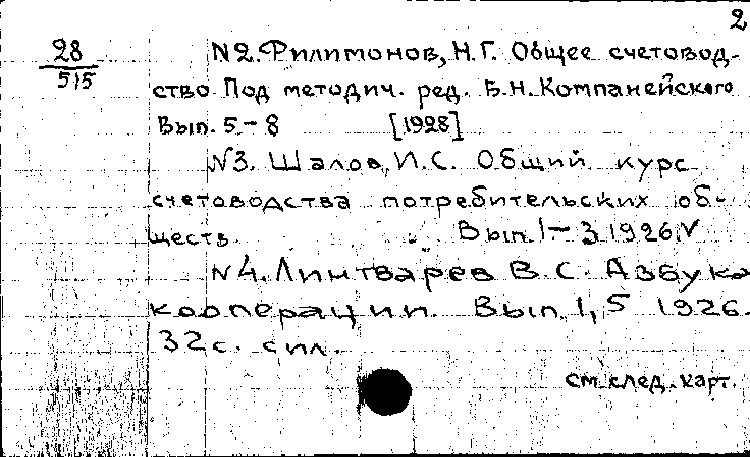 2
28
515
N2. Филимонов, Н.Г. Общее счетовод-
ство Под методич. ред. Б.Н. Компанейского
Вып. 5-8 [1928]
N3. Шалов, И.С. Общий курс
счетоводства потребительских об-
ществ. Вып. 1-3 1926 V
N4. Линтварев В.С. Азбука
кооперации. Вып. 1, 5 1926.
32с. с ил.
см. след. карт.